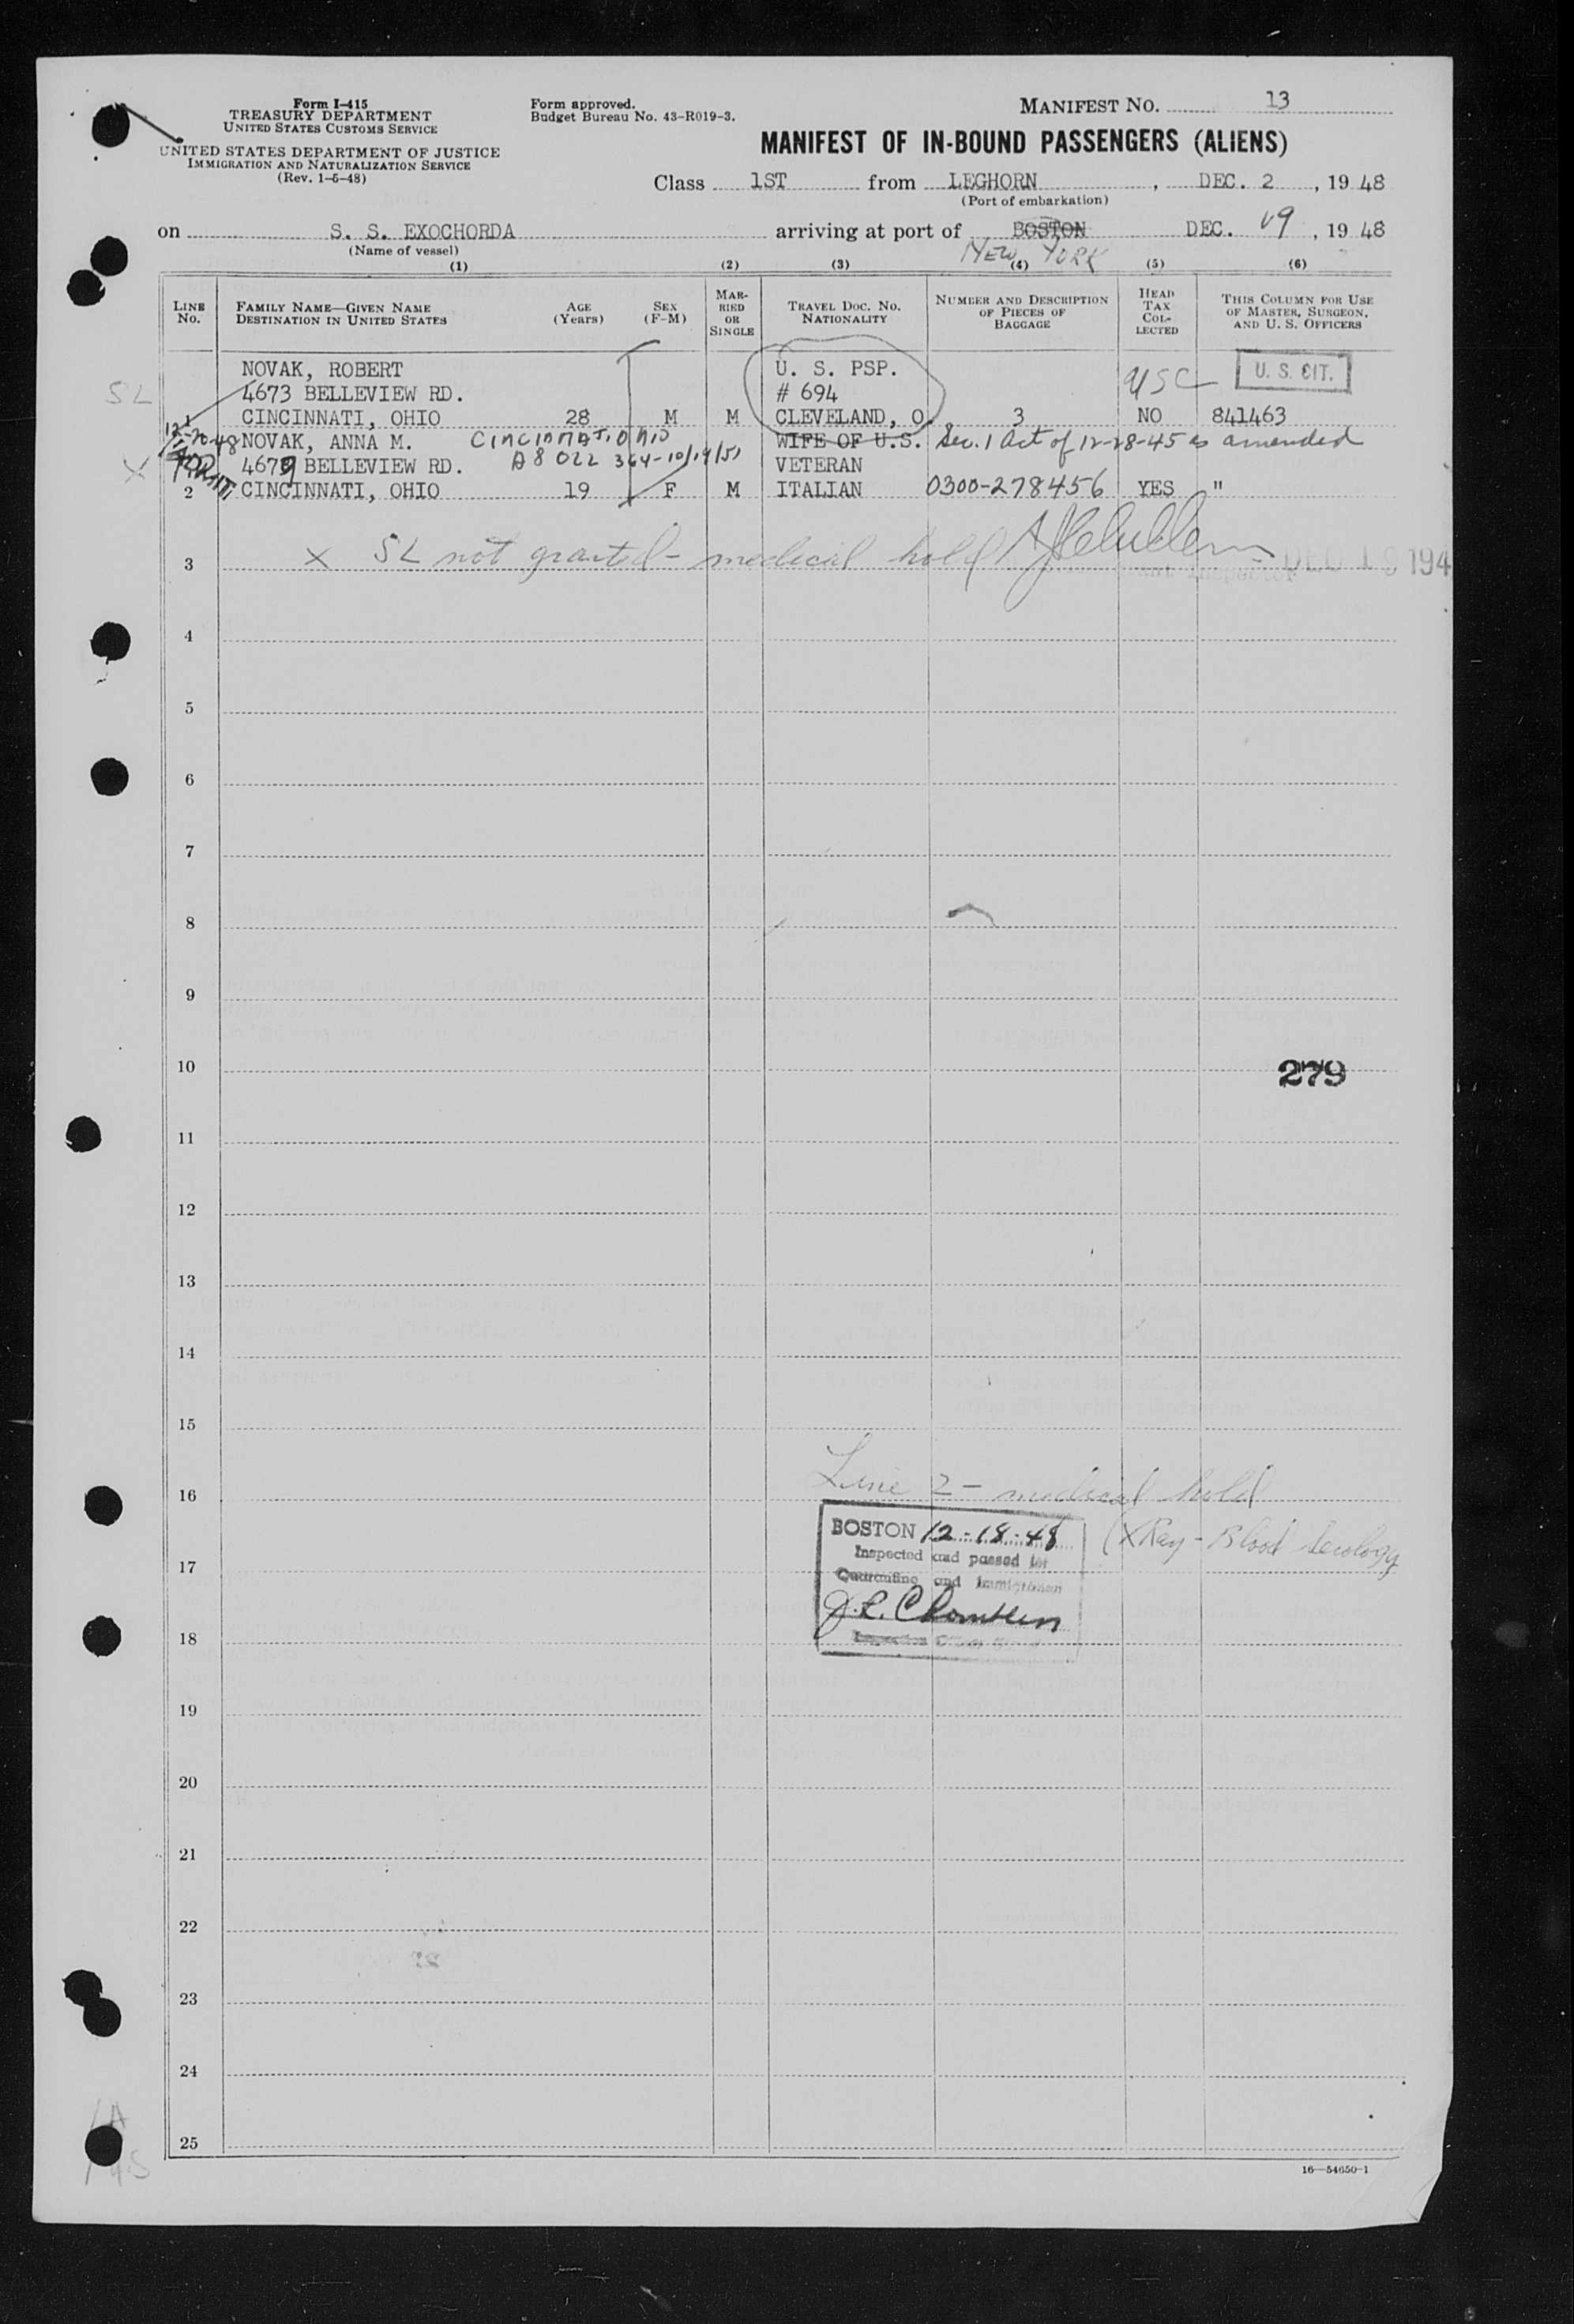 Form I-415
TREASURY DEPARTMENT
UNITED STATES CUSTOMS SERVICE
UNITED STATES DEPARTMENT OF JUSTICE
IMMIGRATION AND NATURALIZATION SERVICE
(Rev. 1-6-48)
Form approved.
Budget Bureau No. 43-R019-3.
MANIFEST NO. 13
MANIFEST OF IN-BOUND PASSENGERS (ALIENS)
Class 1ST from LEGHORN, DEC. 2, 19 48
(Port of embarkation)
on S. S. EXOCHORDA arriving at port of BOSTON DEC. 19, 19 48
(Name of vessel)
NEW YORK
(1) (2) (3) (4) (5) (6)
LINE No. FAMILY NAME—GIVEN NAME DESTINATION IN UNITED STATES AGE (Years) SEX (F-M) MARRIED OR SINGLE TRAVEL DOC. NO. NATIONALITY NUMBER AND DESCRIPTION OF PIECES OF BAGGAGE HEAD TAX COLLECTED THIS COLUMN FOR USE OF MASTER, SURGEON, AND U. S. OFFICERS
NOVAK, ROBERT U. S. PSP. USC U. S. CIT.
SL 4673 BELLEVIEW RD. # 694
1 CINCINNATI, OHIO 28 M M CLEVELAND, O. 3 NO 841463
12-20-48 NOVAK, ANNA M. CINCINNATI OHIO WIFE OF U.S. Sec. 1 Act of 12-28-45 as amended
X ADMIT. 4679 BELLEVIEW RD. A8 022 364-10/19/51 VETERAN
2 CINCINNATI, OHIO 19 F M ITALIAN 0300-278456 YES "
3 X SL not granted - medical hold DEC 19 194
4
5
6
7
8
9
10 279
11
12
13
14
15
16 Line 2 - medical hold
BOSTON 12-18-48 (XRay - Blood Serology
17 Inspected and passed for
Quarantine and Immigration
18
19
20
21
22
23
24
25
16—54650-1